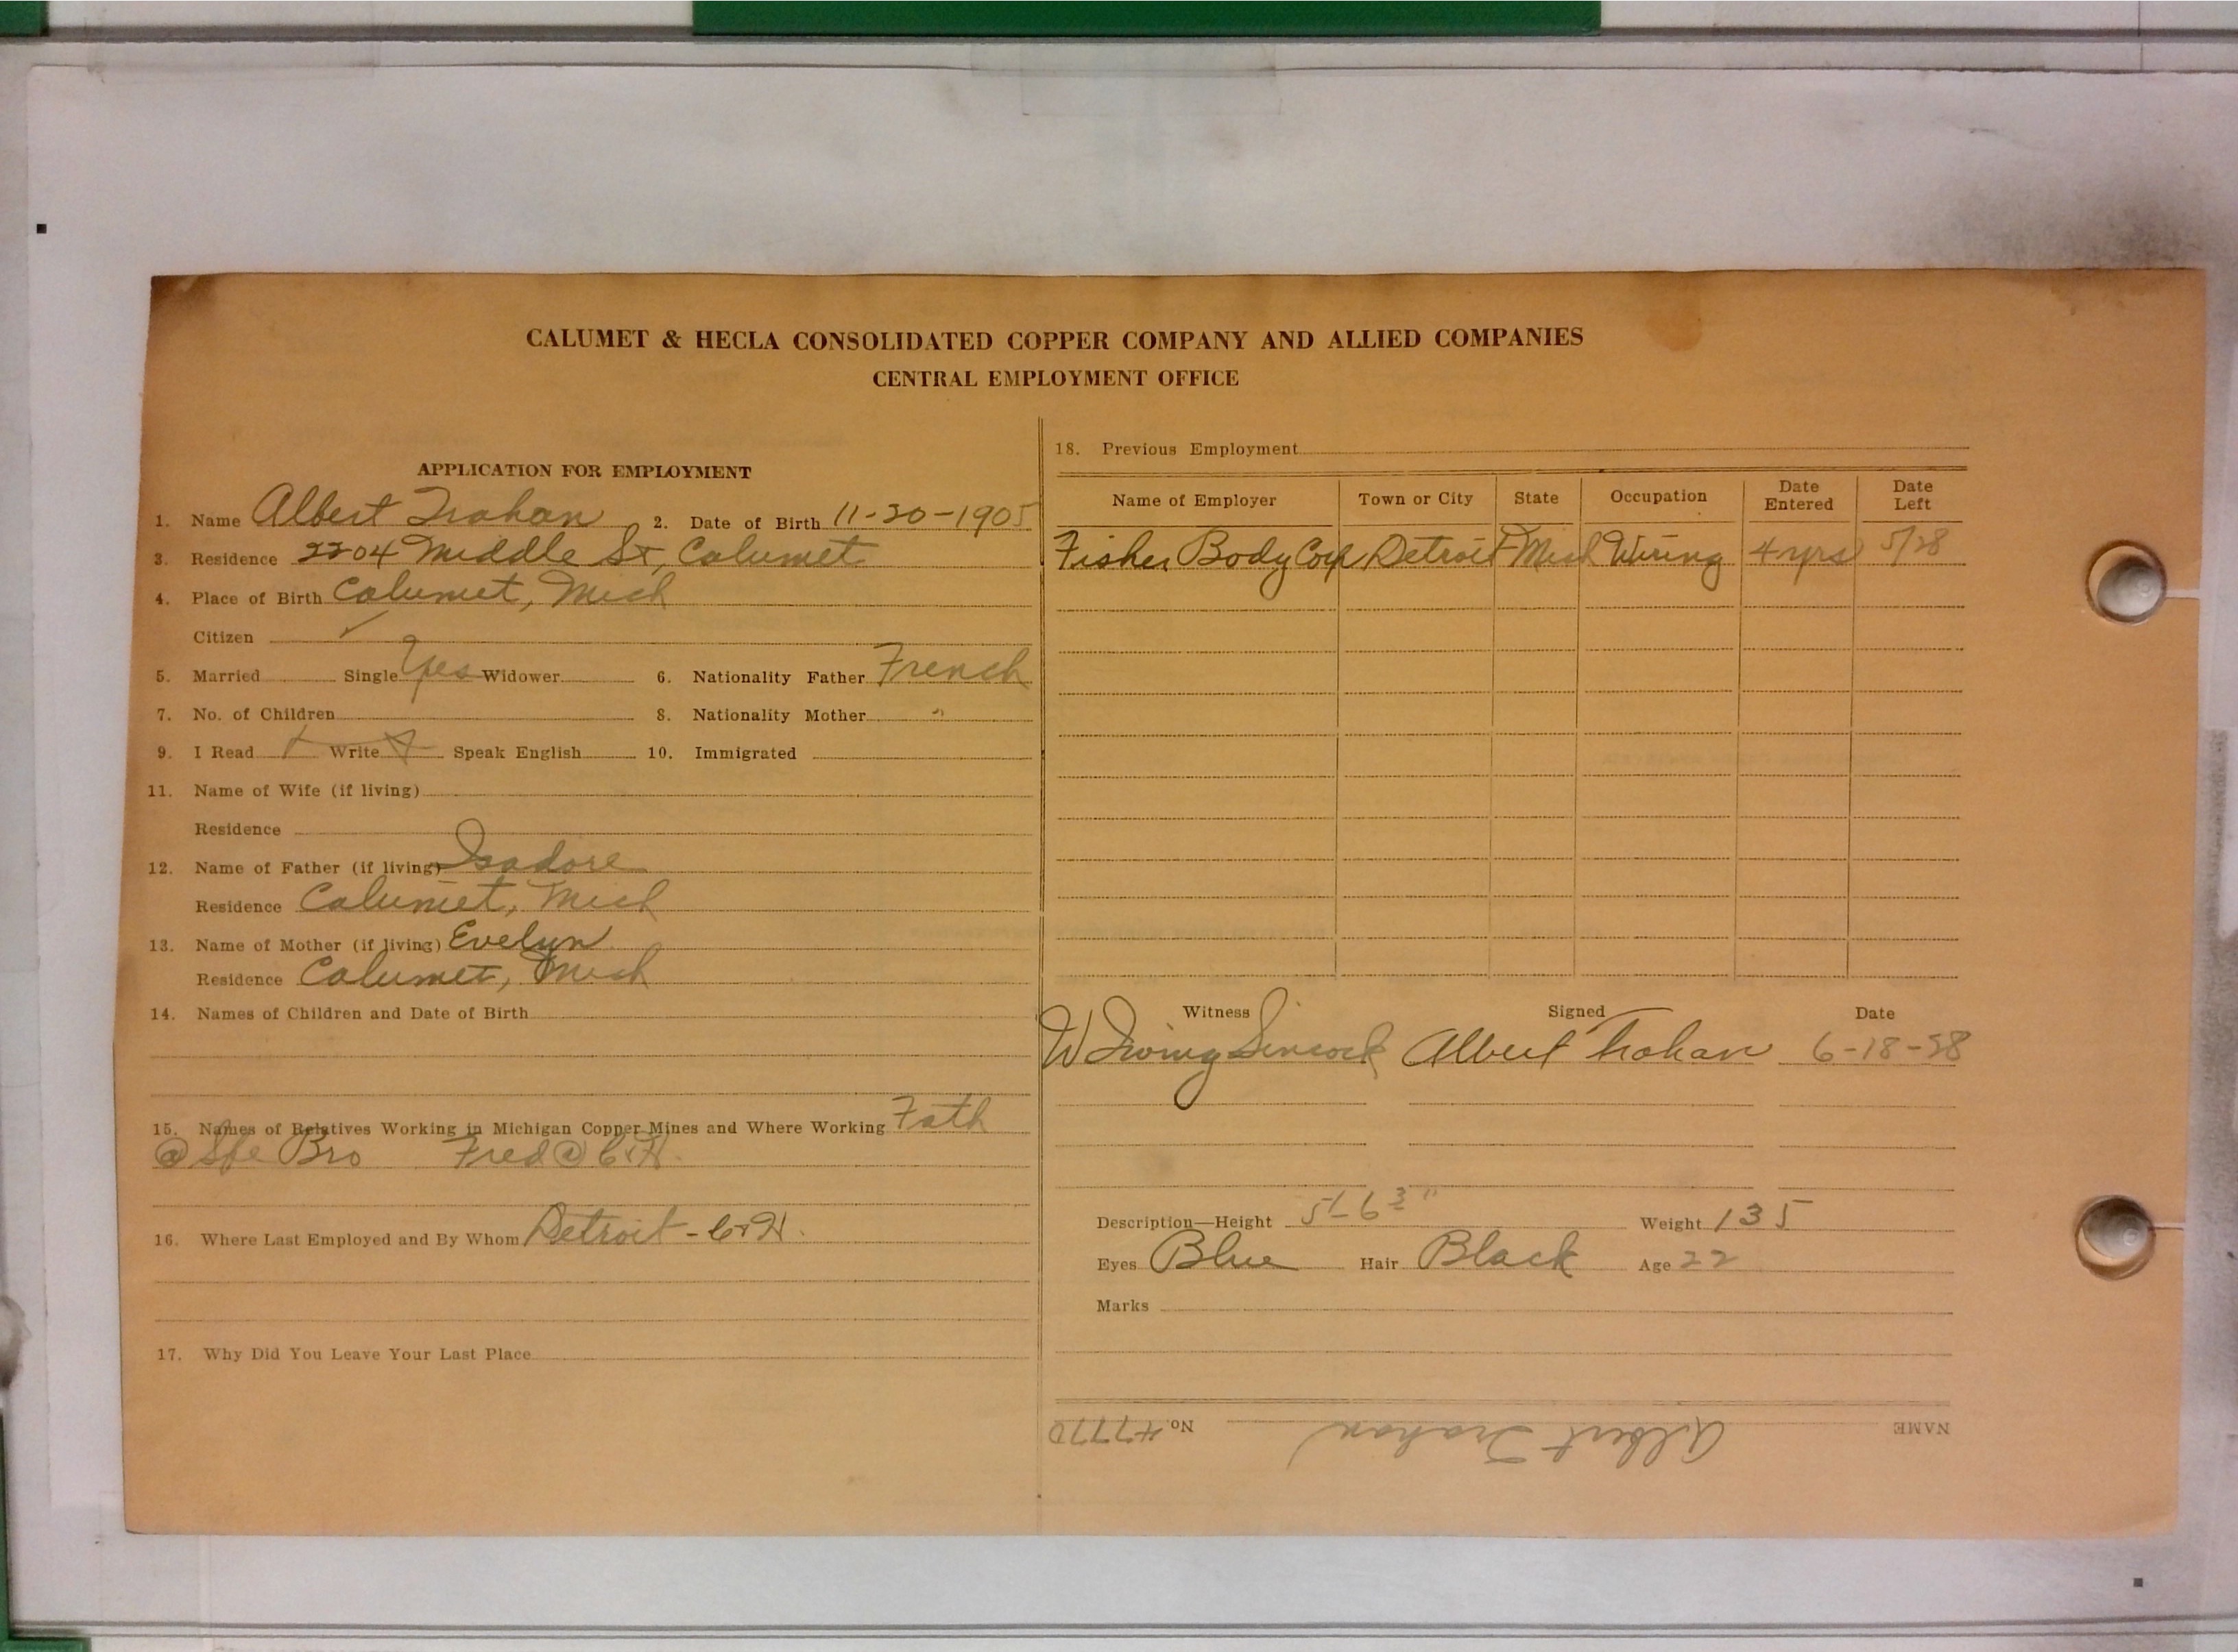 CALUMET & HECLA CONSOLIDATED COPPER COMPANY AND ALLIED COMPANIES
CENTRAL EMPLOYMENT OFFICE
APPLICATION FOR EMPLOYMENT
1. Name Albert Trahan 2. Date of Birth 11-30-1905
3. Residence 2204 Middle St, Calumet
4. Place of Birth Calumet, Mich
Citizen ✓
5. Married Single Yes Widower 6. Nationality Father French
7. No. of Children 8. Nationality Mother "
9. I Read Write Speak English 10. Immigrated
11. Name of Wife (if living)
Residence
12. Name of Father (if living) Isadore
Residence Calumet, Mich
13. Name of Mother (if living) Evelyn
Residence Calumet, Mich
14. Names of Children and Date of Birth
15. Names of Relatives Working in Michigan Copper Mines and Where Working Fath
@ Bro Fred @ C&H.
16. Where Last Employed and By Whom Detroit - C&H.
17. Why Did You Leave Your Last Place
18. Previous Employment
Name of Employer Town or City State Occupation Date Entered Date Left
Fisher Body Corp Detroit Mich Wiring 4 yrs 5/28
Witness Signed Date
W Irving Sincock Albert Trahan 6-18-28
Description—Height 5'-6 3/4" Weight 135
Eyes Blue Hair Black Age 22
Marks
NAME Albert Trahan No. 47770